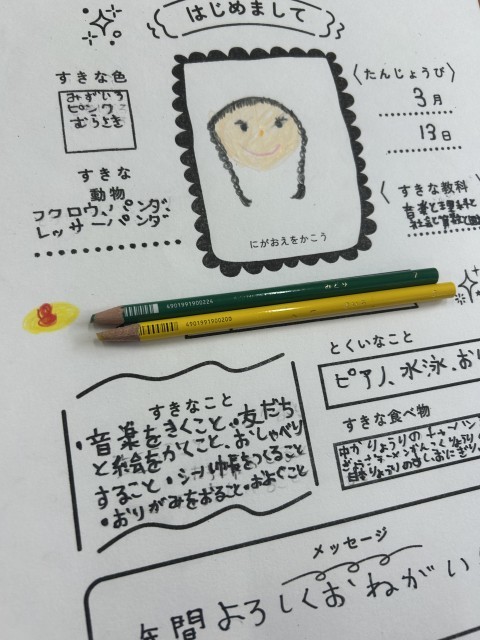 はじめまして
すきな色
みずいろ
ピンク
むらさき
〈たんじょうび〉
3月
13日
すきな
動物
フクロウ、パンダ、
レッサーパンダ
〈すきな教科
音楽と理科と
にがおえをかこう
みどり
4901991900224
4901991900200
とくいなこと
ピアノ、水泳、おり
すきなこと
・音楽をきくこと・友だち
と絵をかくこと・おしゃべり
すること・シール帳をつくること
・おりがみをおること・およぐこと
すきな食べ物
メッセージ
年間よろしくおねがい